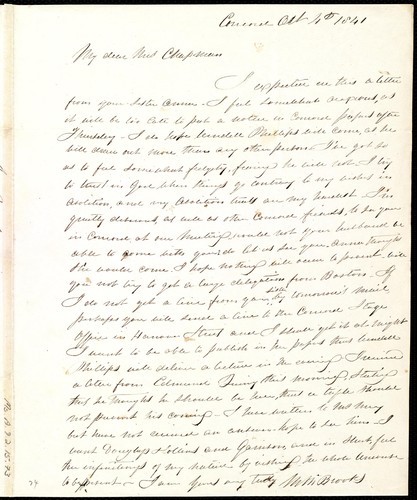 Concord Oct 4th 1841
My dear Mrs Chapman
I expected in this a letter
from your sister Anne - I feel somewhat anxious, as
it will be too late to put a notice in Concord papers after
Thursday - I do hope Wendell Phillips will come, as he
will draw out more than any other person. I've got so
as to feel somewhat fidgety, fearing he will not. I try
to trust in God when things go contrary to my wishes in
abolition, and my abolition trials are my hardest. I'm
greatly desirous, as well as other Concord friends, to see you
in Concord at our meeting would not your husband be
able to come with you, do let us see you, Anne thought
she would come I hope nothing will occur to prevent, will
you not try to get a large delegation from Boston. If
I do not get a line from your sister by tomorrow's mail
perhaps you will send a line to the Concord Stage
Office in Hanover Street and I shall get it at night
I want to be able to publish in the papers that Wendell
Phillips will deliver a lecture in the evening I received
a letter from Edmund Quincy this morning, stating
that he thought he should be here, that a trifle should
not prevent his coming - I have written to Mr May
but have not received an answer hope to see him - I
want Douglass Collins and Garrison, and in short feel
the infirmities of my nature by wishing the whole
to be present - I am yours very truly M M Brooks